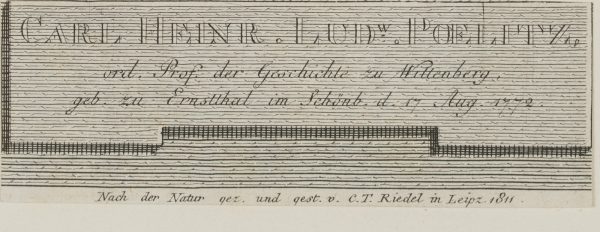 CARL HEINR. LUDW. POELITZ,
ord. Prof. der Geschichte zu Wittenberg,
geb. zu Ernstthal im Schönb. d. 17 Aug. 1772.
Nach der Natur gez. und gest. v. C.T. Riedel in Leipz. 1811.